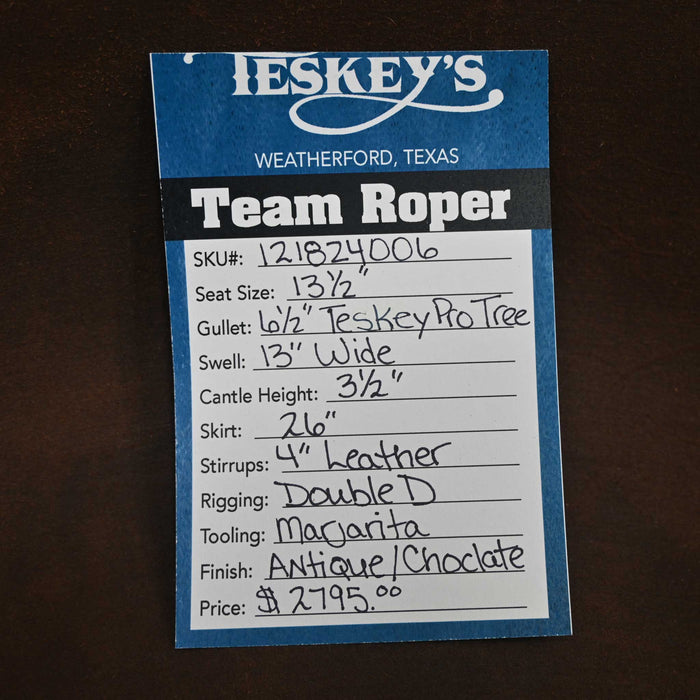 TESKEY'S
WEATHERFORD, TEXAS
Team Roper
SKU#: 121824006
Seat Size: 13½"
Gullet: 6½" Teskey Pro Tree
Swell: 13" Wide
Cantle Height: 3½"
Skirt: 26"
Stirrups: 4" Leather
Rigging: Double D
Tooling: Marjarita
Finish: Antique/Choclate
Price: $2795.00